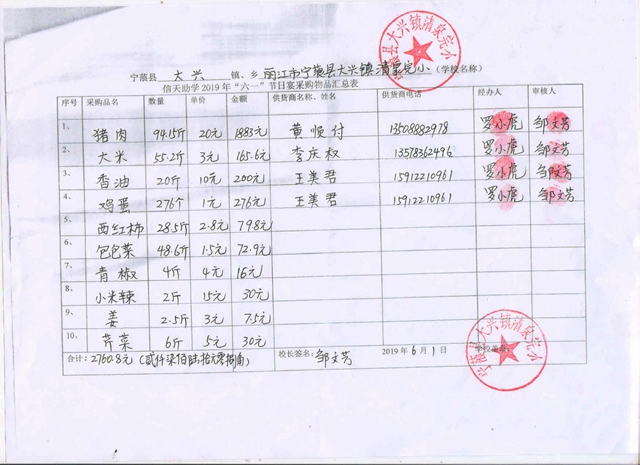 宁蒗县大兴镇清泉完小
宁蒗县 大兴 镇、乡 丽江市宁蒗县大兴镇清泉完小 (学校名称)
信天助学2019年“六一”节日宴采购物品汇总表
序号 采购品名 数量 单价 金额 供货商名称、姓名 供货商电话 经办人 审核人
1、 猪肉 94.15斤 20元 1883元 黄顺付 13508882978 罗小虎 邹文芳
2、 大米 55.2斤 3元 165.6元 李庆权 13578362496 罗小虎 邹文芳
3、 香油 20斤 10元 200元 王美君 15912210961 罗小虎 邹文芳
4、 鸡蛋 276个 1元 276元 王美君 15912210961 罗小虎 邹文芳
5、 西红柿 28.5斤 2.8元 79.8元
6、 包包菜 48.6斤 1.5元 72.9元
7、 青椒 4斤 4元 16元
8、 小米辣 2斤 15元 30元
9、 姜 2.5斤 3元 7.5元
10、 芹菜 6斤 5元 30元
合计:2760.8元(贰仟柒佰陆拾元零捌角) 校长签名: 邹文芳 2019年6月1日 学校签章
宁蒗县大兴镇清泉完小